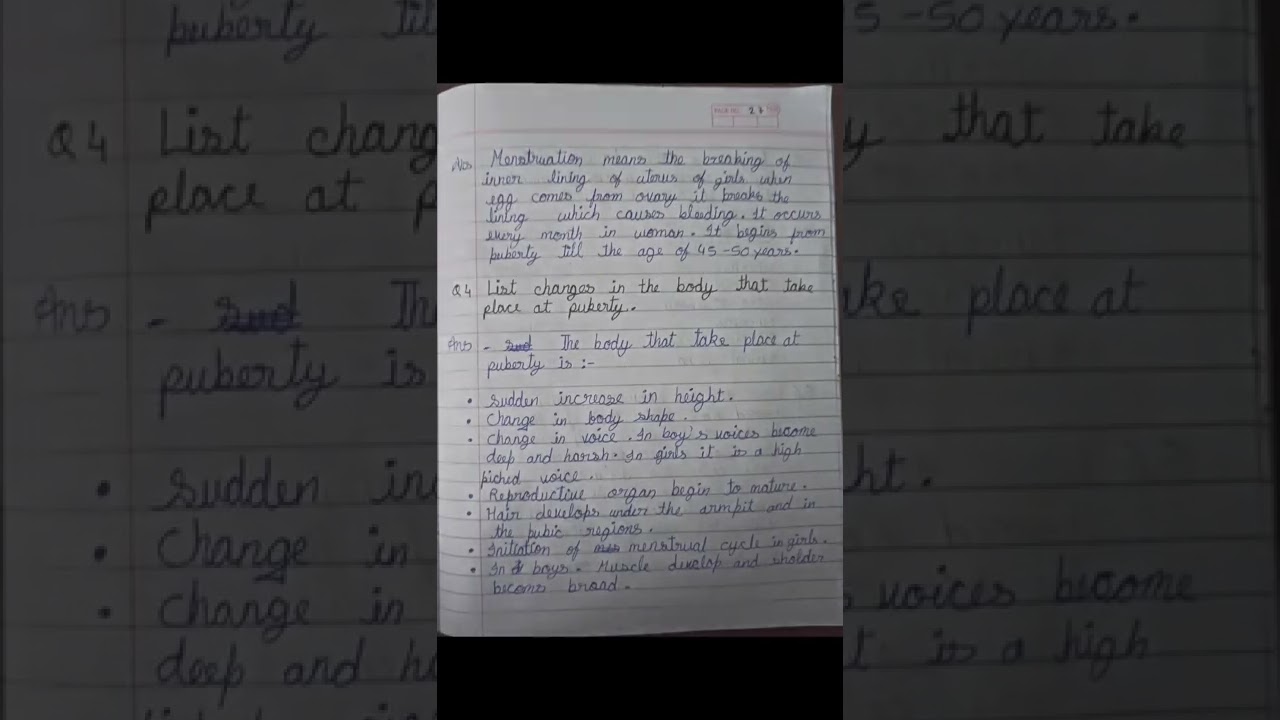 PAGE NO. 27
Ans Menstruation means the breaking of
inner lining of uterus of girls when
egg comes from ovary it breaks the
lining which causes bleeding. It occurs
every month in woman. It begins from
puberty till the age of 45-50 years.
Q4 List changes in the body that take
place at puberty.
Ans - The body that take place at
puberty is :-
• Sudden increase in height.
• Change in body shape.
• Change in voice. In boy's voices become
deep and harsh. In girls it is a high
piched voice.
• Reproductive organ begin to mature.
• Hair develops under the armpit and in
the pubic regions.
• Initiation of menstrual cycle in girls.
• In boys. Muscle develop and sholder
become broad.